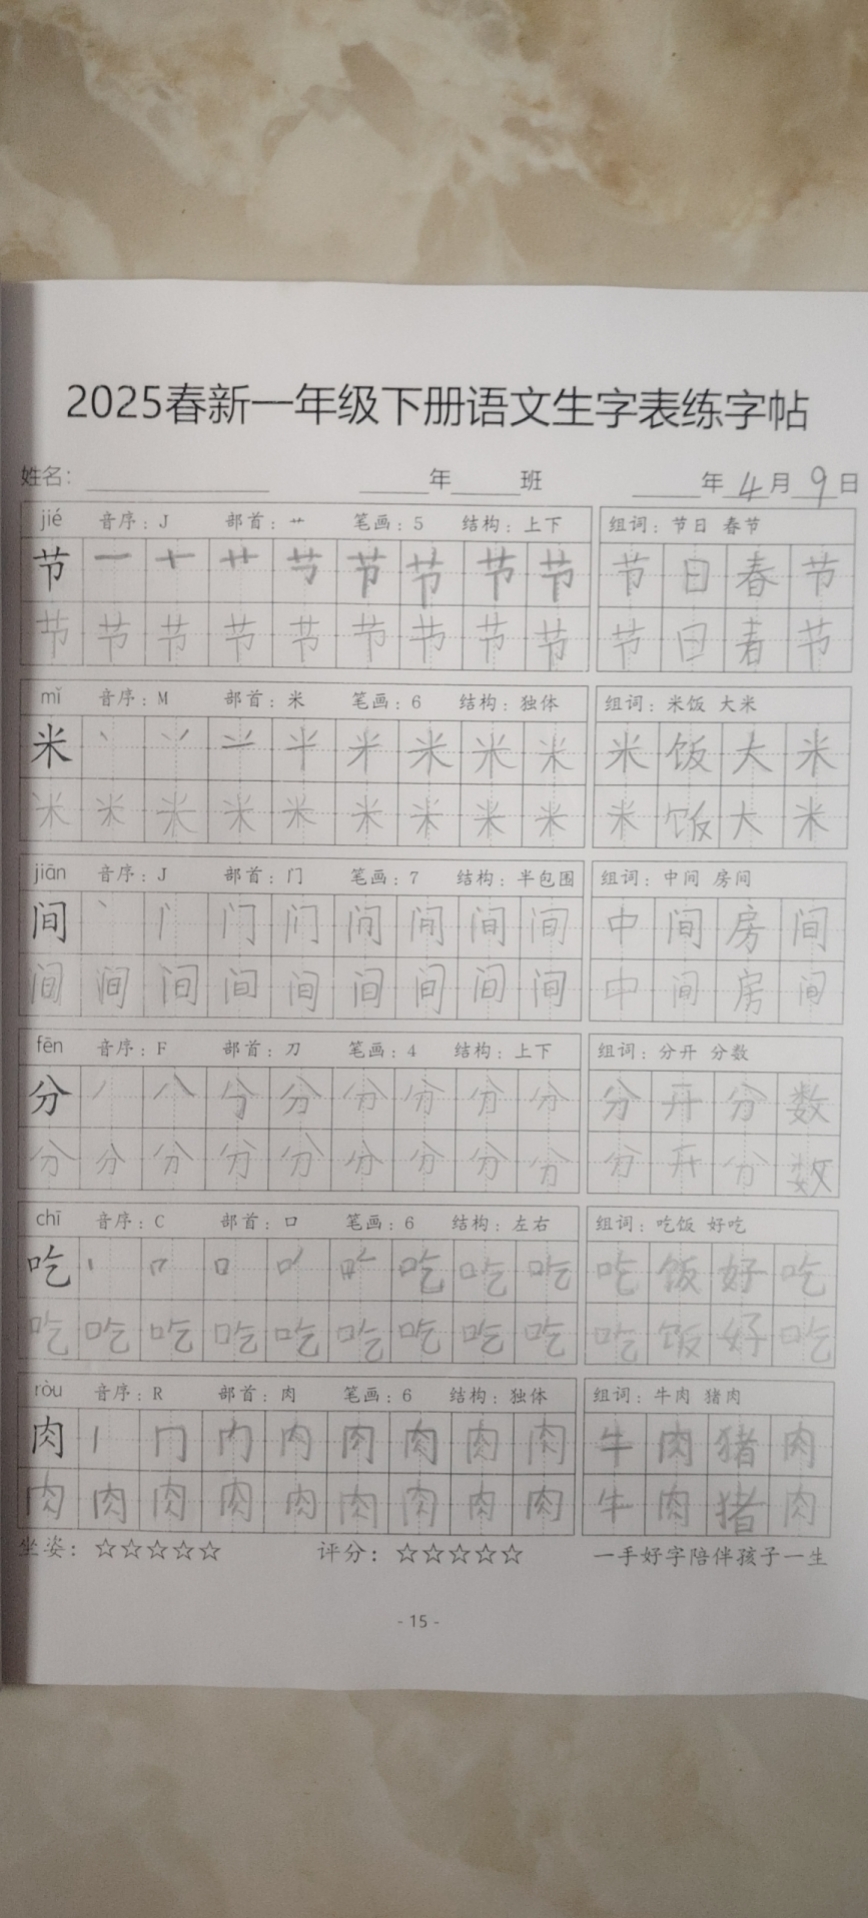 2025春新一年级下册语文生字表练字帖
姓名：
年 班
年 4 月 9 日
jié 音序：J 部首：艹 笔画：5 结构：上下
组词：节日 春节
节 一 十 艹 节 节 节 节 节
节 日 春 节
节 节 节 节 节 节 节 节 节
节 日 春 节
mǐ 音序：M 部首：米 笔画：6 结构：独体
组词：米饭 大米
米 米 米 米 米
米 饭 大 米
米 米 米 米 米 米 米 米 米
米 饭 大 米
jiān 音序：J 部首：门 笔画：7 结构：半包围
组词：中间 房间
间 丶 门 间 间 间
中 间 房 间
间 间 间 间 间 间 间 间 间
中 间 房 间
fēn 音序：F 部首：刀 笔画：4 结构：上下
组词：分开 分数
分 丿 八 分 分 分 分 分
分 开 分 数
分 分 分 分 分 分 分 分 分
分 开 分 数
chī 音序：C 部首：口 笔画：6 结构：左右
组词：吃饭 好吃
吃 口 吃 吃 吃
吃 饭 好 吃
吃 吃 吃 吃 吃 吃 吃 吃 吃
吃 饭 好 吃
ròu 音序：R 部首：肉 笔画：6 结构：独体
组词：牛肉 猪肉
肉 丨 冂 内 肉 肉 肉 肉
牛 肉 猪 肉
肉 肉 肉 肉 肉 肉 肉 肉 肉
牛 肉 猪 肉
坐姿：☆☆☆☆☆
评分：☆☆☆☆☆
一手好字陪伴孩子一生
- 15 -